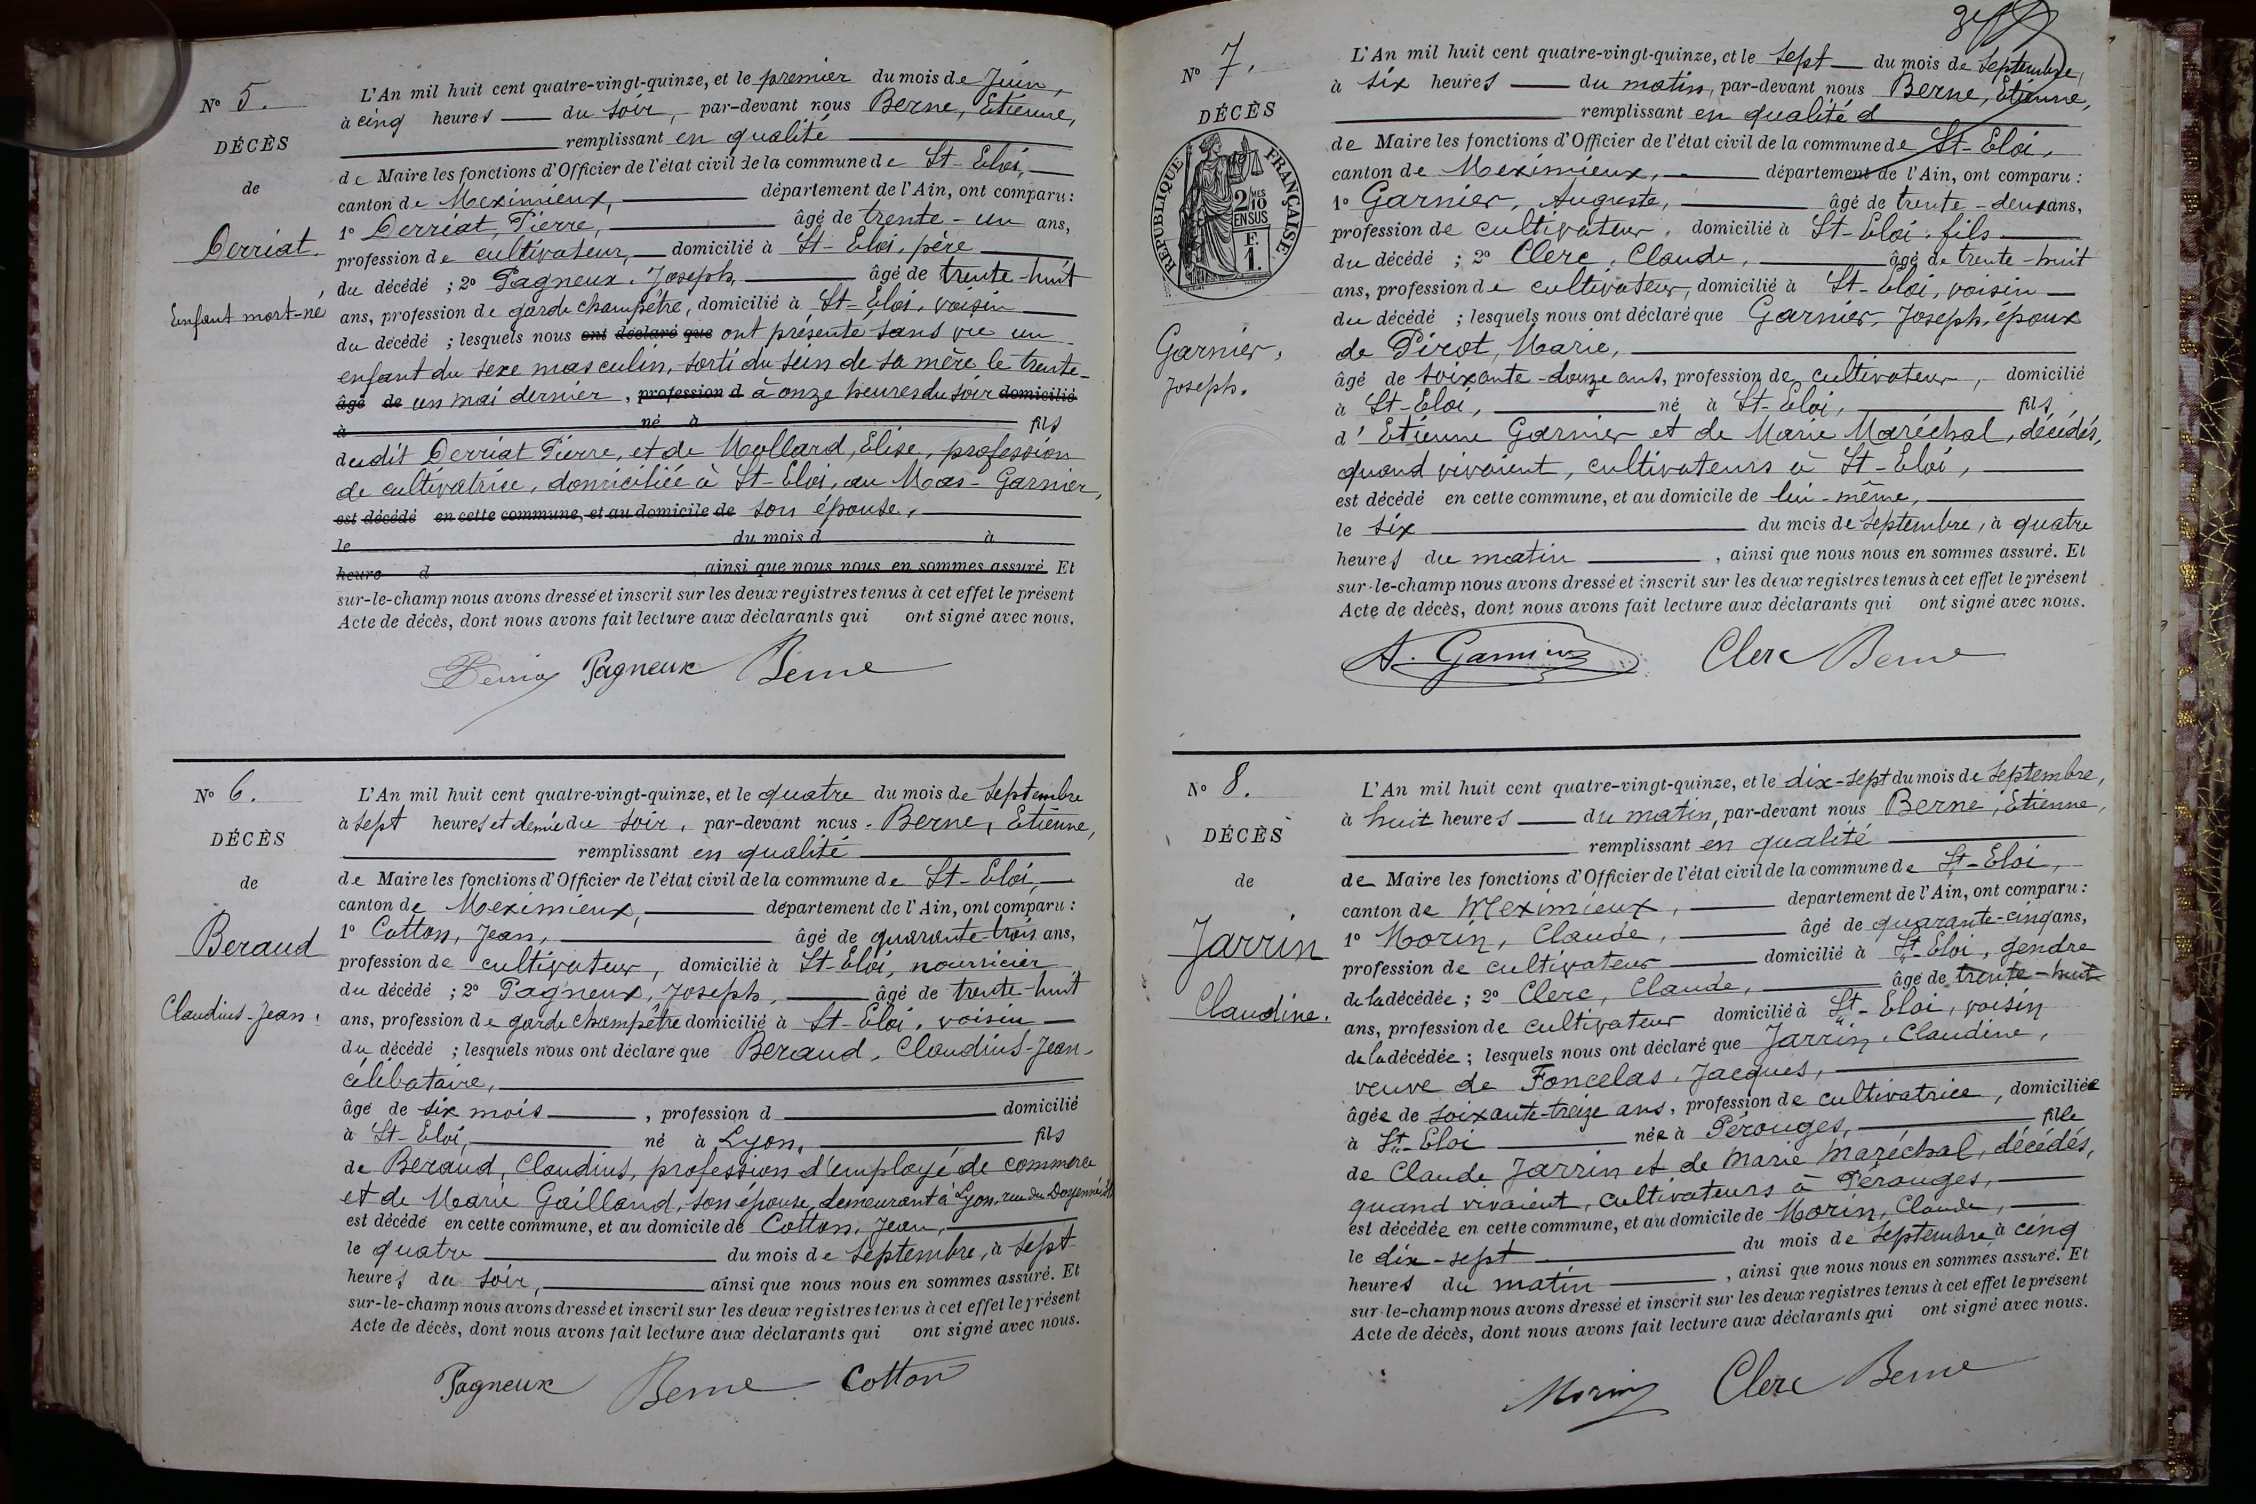 N° 5.
DÉCÈS
de
Derriat.
Enfant mort-né
L'An mil huit cent quatre-vingt-quinze, et le premier du mois de Juin,
à cinq heures du soir, par-devant nous Berne, Etienne,
remplissant en qualité
de Maire les fonctions d'Officier de l'état civil de la commune de St-Eloi,
canton de Meximieux, département de l'Ain, ont comparu :
1° Derriat, Pierre, âgé de trente-un ans,
profession de cultivateur, domicilié à St-Eloi, père
du décédé ; 2° Pagneux, Joseph, âgé de trente-huit
ans, profession de garde champêtre, domicilié à St-Eloi, voisin
du décédé ; lesquels nous ont déclaré que ont présenté sans vie un
enfant du sexe masculin, sorti du sein de sa mère le trente-
âgé de un mai dernier, profession d à onze heures du soir domicilié
à né à fils
dudit Derriat Pierre, et de Mollard, Elise, profession
de cultivatrice, domiciliée à St-Eloi, au Mas-Garnier,
est décédé en cette commune, et au domicile de son épouse,
le du mois d à
heure d , ainsi que nous nous en sommes assuré. Et
sur-le-champ nous avons dressé et inscrit sur les deux registres tenus à cet effet le présent
Acte de décès, dont nous avons fait lecture aux déclarants qui ont signé avec nous.
Pagneux Berne
N° 6.
DÉCÈS
de
Beraud
Claudius-Jean.
L'An mil huit cent quatre-vingt-quinze, et le quatre du mois de Septembre
à sept heures et demie du soir, par-devant nous Berne, Etienne,
remplissant en qualité
de Maire les fonctions d'Officier de l'état civil de la commune de St-Eloi,
canton de Meximieux, département de l'Ain, ont comparu :
1° Cotton, Jean, âgé de quarante-trois ans,
profession de cultivateur, domicilié à St-Eloi, nourricier
du décédé ; 2° Pagneux, Joseph, âgé de trente-huit
ans, profession de garde champêtre domicilié à St-Eloi, voisin
du décédé ; lesquels nous ont déclaré que Beraud, Claudius-Jean,
célibataire,
âgé de six mois, profession d domicilié
à St-Eloi, né à Lyon, fils
de Beraud, Claudius, profession d'employé de commerce
et de Marie Gailland, son épouse, demeurant à Lyon, rue du Doyenné
est décédé en cette commune, et au domicile de Cotton, Jean,
le quatre du mois de Septembre, à sept
heures du soir, ainsi que nous nous en sommes assuré. Et
sur-le-champ nous avons dressé et inscrit sur les deux registres tenus à cet effet le présent
Acte de décès, dont nous avons fait lecture aux déclarants qui ont signé avec nous.
Pagneux Berne Cotton
N° 7.
DÉCÈS
RÉPUBLIQUE FRANÇAISE
2 MES
10
EN SUS
F.
1.
Garnier,
Joseph.
L'An mil huit cent quatre-vingt-quinze, et le sept du mois de Septembre,
à six heures du matin, par-devant nous Berne, Etienne,
remplissant en qualité d
de Maire les fonctions d'Officier de l'état civil de la commune de St-Eloi,
canton de Meximieux, département de l'Ain, ont comparu :
1° Garnier, Auguste, âgé de trente-deux ans,
profession de cultivateur, domicilié à St-Eloi, fils
du décédé ; 2° Clerc, Claude, âgé de trente-huit
ans, profession de cultivateur, domicilié à St-Eloi, voisin
du décédé ; lesquels nous ont déclaré que Garnier, Joseph, époux
de Pirot, Marie,
âgé de soixante-douze ans, profession de cultivateur, domicilié
à St-Eloi, né à St-Eloi, fils
d' Etienne Garnier et de Marie Maréchal, décédés,
quand vivaient, cultivateurs à St-Eloi,
est décédé en cette commune, et au domicile de lui-même,
le six du mois de Septembre, à quatre
heures du matin, ainsi que nous nous en sommes assuré. Et
sur-le-champ nous avons dressé et inscrit sur les deux registres tenus à cet effet le présent
Acte de décès, dont nous avons fait lecture aux déclarants qui ont signé avec nous.
A. Garnier Clerc Berne
N° 8.
DÉCÈS
de
Jarrin
Claudine.
L'An mil huit cent quatre-vingt-quinze, et le dix-sept du mois de Septembre,
à huit heures du matin, par-devant nous Berne, Etienne,
remplissant en qualité
de Maire les fonctions d'Officier de l'état civil de la commune de St-Eloi,
canton de Meximieux, département de l'Ain, ont comparu :
1° Morin, Claude, âgé de quarante-cinq ans,
profession de cultivateur domicilié à St-Eloi, gendre
de la décédée ; 2° Clerc, Claude, âgé de trente-huit
ans, profession de cultivateur domicilié à St-Eloi, voisin
de la décédée ; lesquels nous ont déclaré que Jarrin, Claudine,
veuve de Foncelas, Jacques,
âgée de soixante-treize ans, profession de cultivatrice, domiciliée
à St-Eloi née à Pérouges, fille
de Claude Jarrin et de Marie Maréchal, décédés,
quand vivaient, cultivateurs à Pérouges,
est décédée en cette commune, et au domicile de Morin, Claude,
le dix-sept du mois de Septembre à cinq
heures du matin, ainsi que nous nous en sommes assuré. Et
sur-le-champ nous avons dressé et inscrit sur les deux registres tenus à cet effet le présent
Acte de décès, dont nous avons fait lecture aux déclarants qui ont signé avec nous.
Morin Clerc Berne